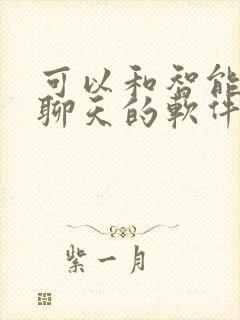 可以和智能
聊天的軟件
紫一月